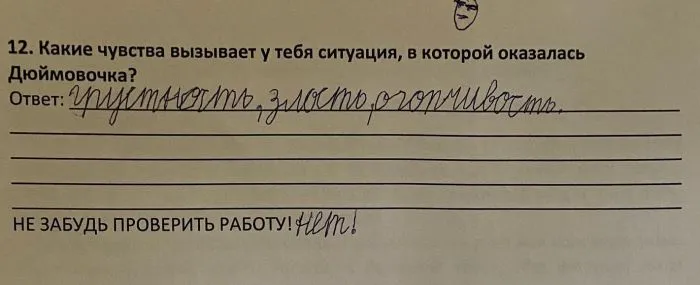 12. Какие чувства вызывает у тебя ситуация, в которой оказалась
Дюймовочка?
Ответ: грустность, злость, огопчивость.
НЕ ЗАБУДЬ ПРОВЕРИТЬ РАБОТУ! нет!